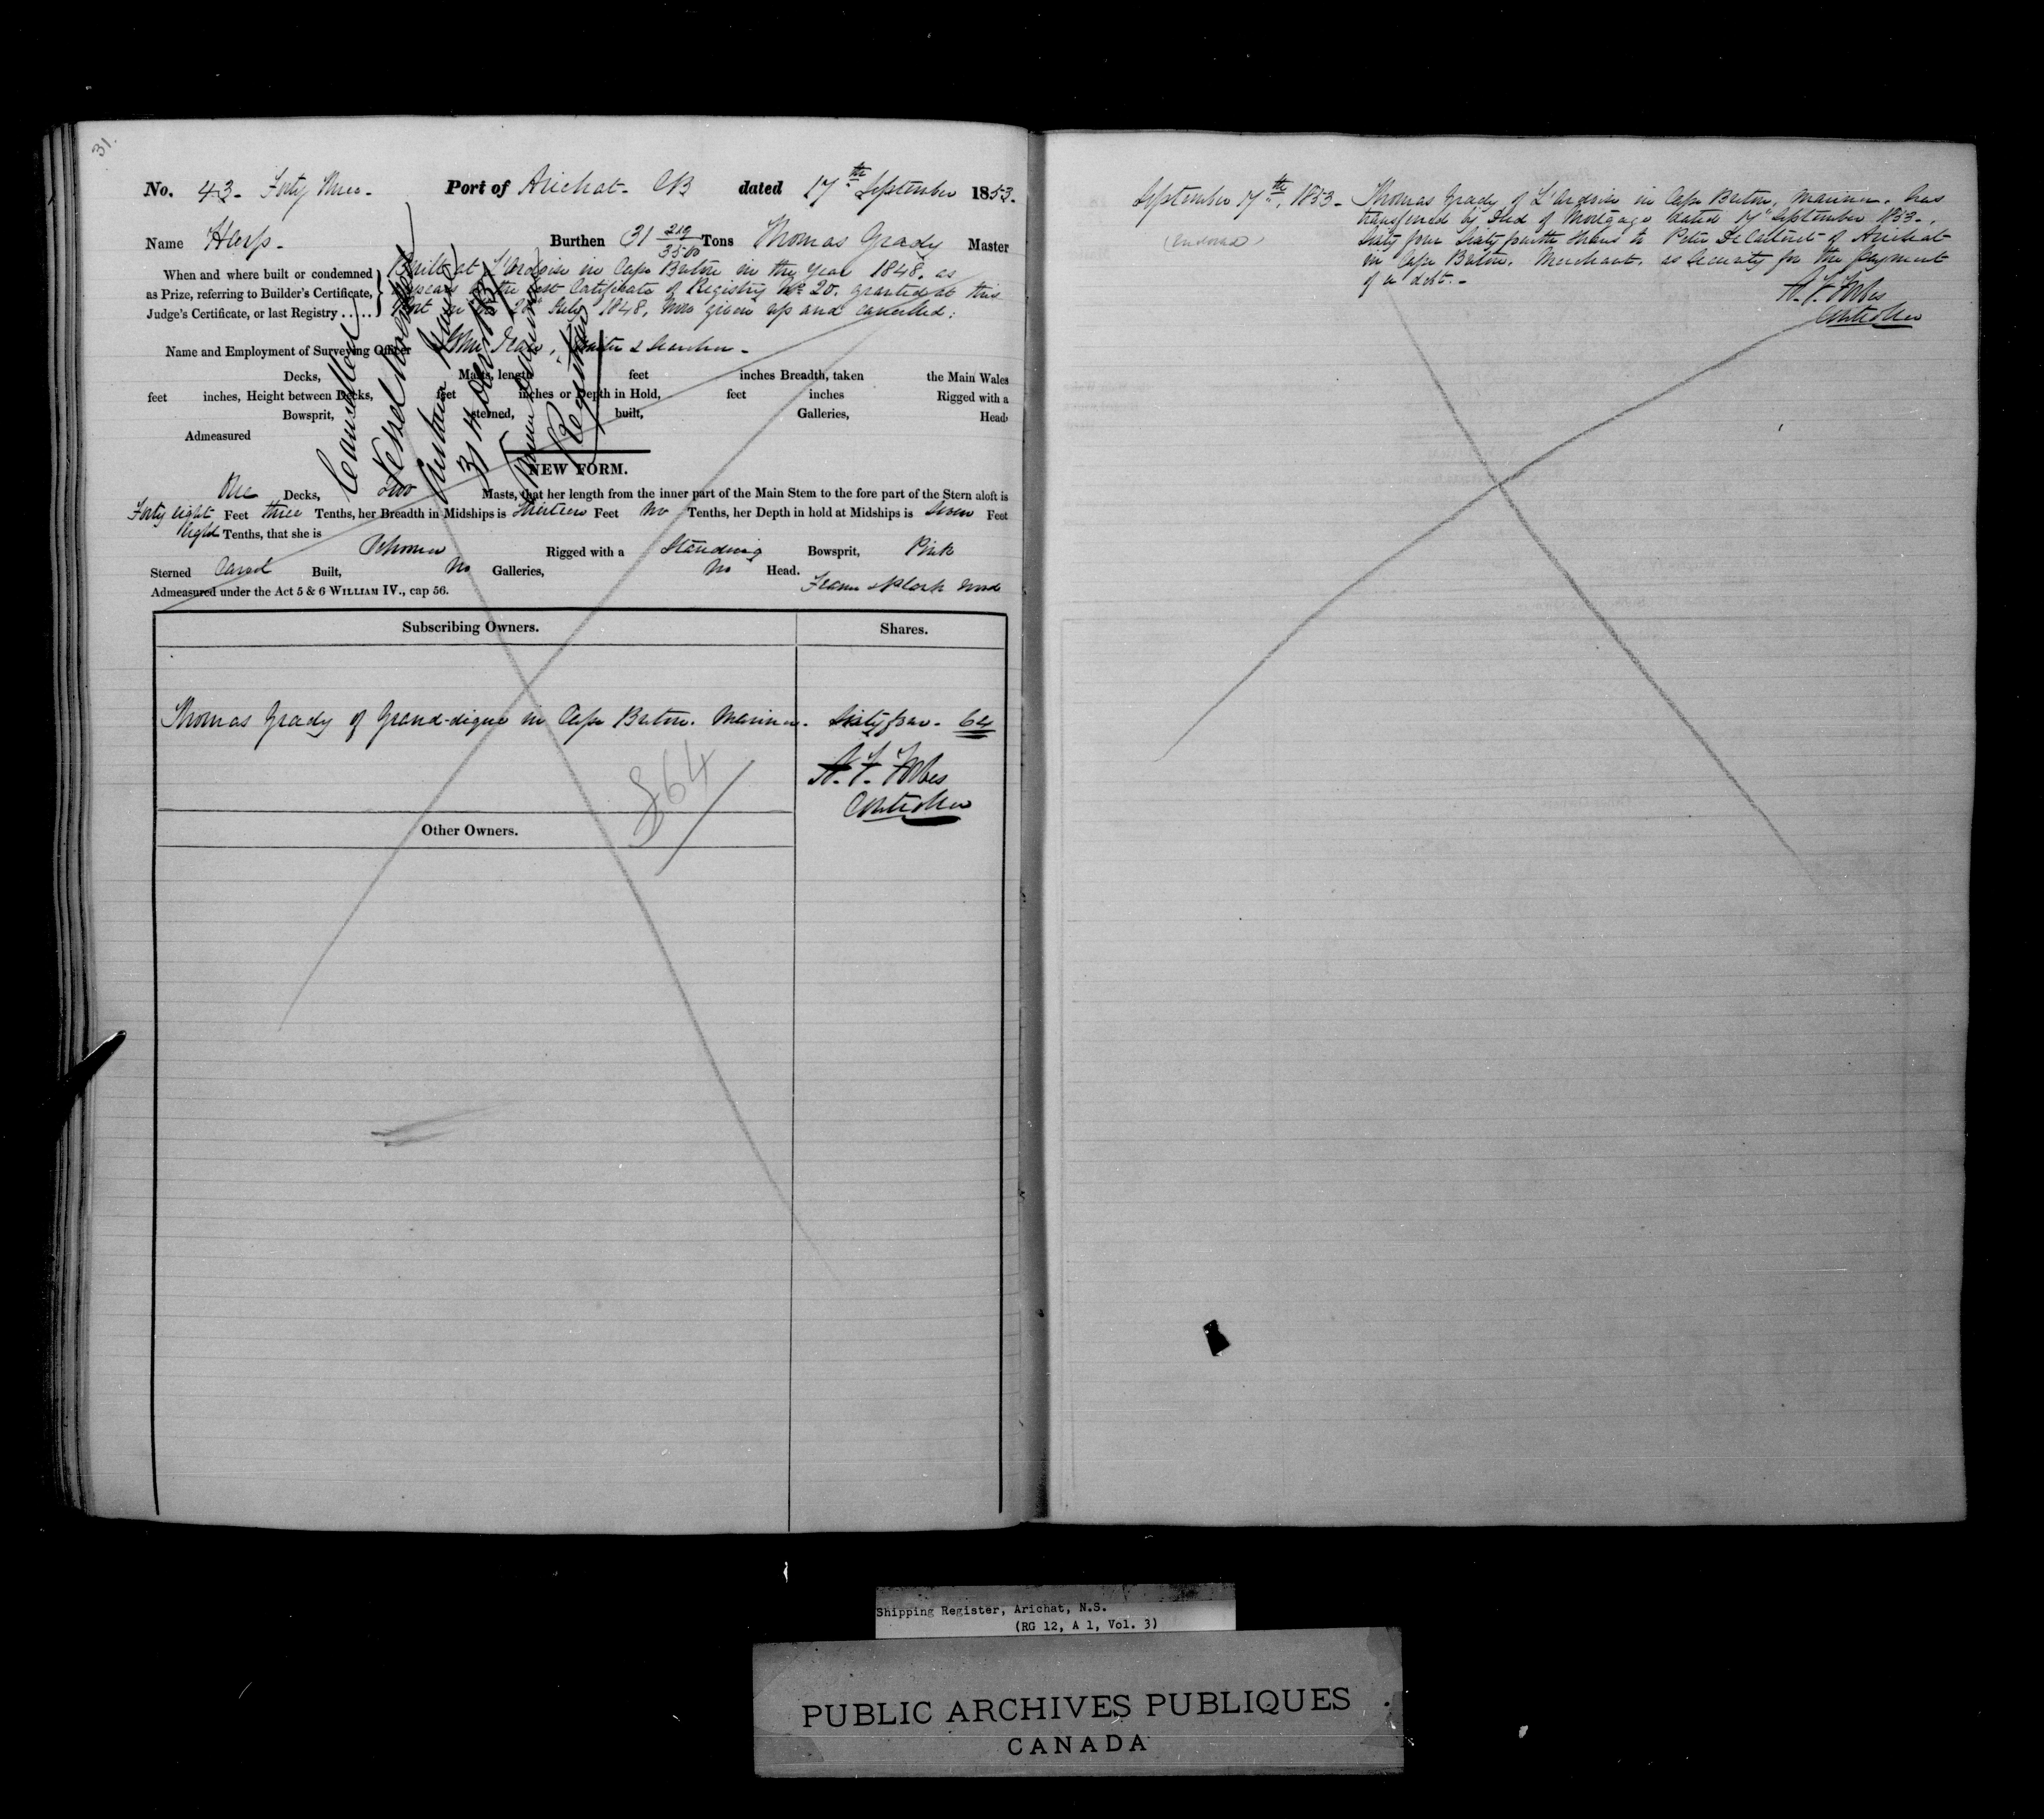 31.
No. 43- Forty three- Port of Arichat- CB dated 17th September 1853.
Name Harp- Burthen 31 219/3500 Tons Thomas Grady Master
When and where built or condemned
as Prize, referring to Builder's Certificate,
Judge's Certificate, or last Registry .....
Built at L'Ardoise in Cape Breton in the year 1848. as
appears the last Certificate of Registry No 20. granted at this
Port July 1848, now given up and cancelled:
Name and Employment of Surveying Officer John
Decks, Masts, length feet inches Breadth, taken the Main Wales
feet inches, Height between Decks, feet inches or Depth in Hold, feet inches Rigged with a
Bowsprit, sterned, built, Galleries, Head
Admeasured
Cancelled
Vessel
31st
Registrar
NEW FORM.
One Decks, two Masts, that her length from the inner part of the Main Stem to the fore part of the Stern aloft is
Forty eight Feet three Tenths, her Breadth in Midships is thirteen Feet no Tenths, her Depth in hold at Midships is Seven Feet
Eight Tenths, that she is
Schooner Rigged with a Standing Bowsprit, Pink
Sterned Carvel Built, No Galleries, No Head.
Admeasured under the Act 5 & 6 WILLIAM IV., cap 56. Frame & plank wood
Subscribing Owners. Shares.
Thomas Grady of Grand-digue in Cape Breton. Mariner. Sixty four- 64
H. F. Forbes
Controller
864
Other Owners.
September 17th, 1853- Thomas Grady of L'Ardoise in Cape Breton, Mariner, has
(Endorsed) transferred by Deed of Mortgage dated 17th September 1853-,
Sixty four Sixty fourth shares to Peter DeCarteret of Arichat
in Cape Breton. Merchant. as Security for the payment
of a debt.-
H. F. Forbes
Controller
Shipping Register, Arichat, N.S.
(RG 12, A 1, Vol. 3)
PUBLIC ARCHIVES PUBLIQUES
CANADA